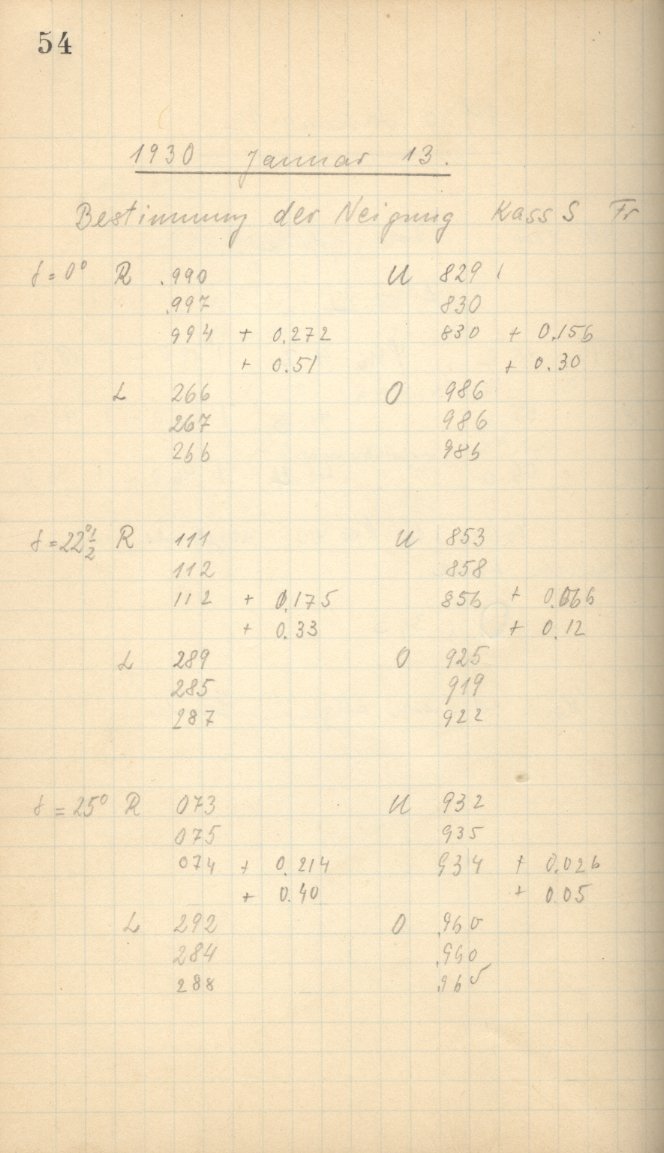 54
1930 Januar 13.
Bestimmung der Neigung Kass S Fr
δ = 0° R .990 U 829
.997 830
994 + 0.272 830 + 0.156
+ 0.51 + 0.30
L 266 O 986
267 986
266 986
δ = 22°½ R 111 U 853
112 858
112 + 0.175 856 + 0.066
+ 0.33 + 0.12
L 289 O 925
285 919
287 922
δ = 25° R 073 U 932
075 935
074 + 0.214 934 + 0.026
+ 0.40 + 0.05
L 292 O .960
284 .960
288 .965